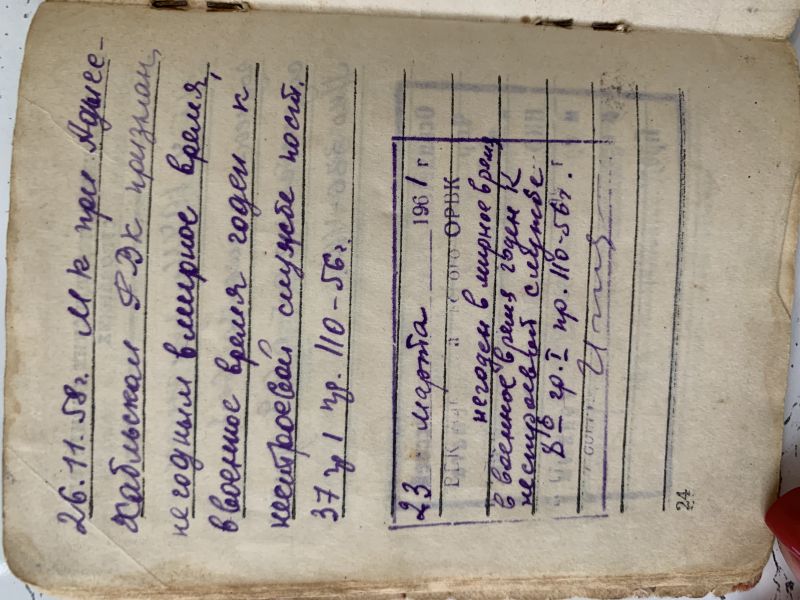 26.11.58г. МК при Адыге-
Хабльском РВК признан
негодным в мирное время,
в военное время годен к
нестроевой службе пост.
37 гр 1 пр. 110-56г.
23 марта 1961 г
ОРВК
негоден в мирное время
в военное время годен к
нестроевой службе
гр. I пр. 110-56г.
24